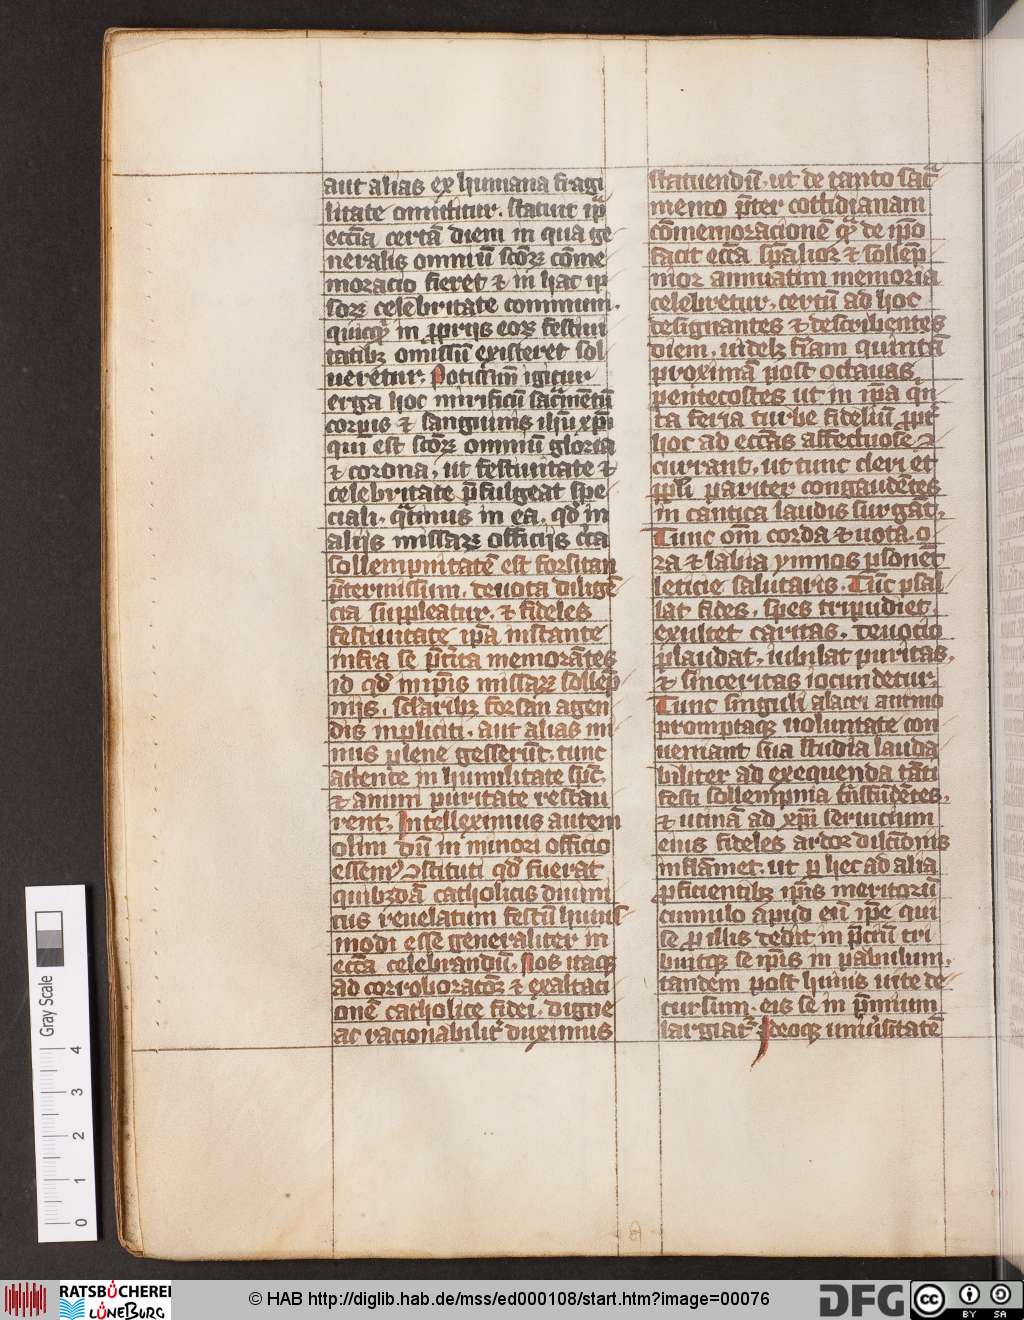 aut alias ex humana fragi
litate omittitur. statuit ip̄a
eccīa certā diem in qua ge
neralis omniū scōrꝝ cōme
moracio fieret & in hac ip
sorꝝ celebritate communi.
quicqͥd in ꝓprijs eorꝝ festiui
tatibꝫ omissū existeret sol
ueretur. Potissim̄ igitur
erga hoc mirificū sacͣmentū
corpis & sanguinis ihū xp̄i
qui est scōrꝝ omniū gloria
& corona. ut festiuitate &
celebritate p̄fulgeat spe
ciali. qͣtinus in ea. qd̓ in
alijs missarꝝ officijs circa
sollempnitatē est forsitan
p̄termissum. deuota diligē
cia suppleatur. & fideles
festiuitate ip̄a instante
infra se p̄t̓ita memorātes
id qd̓ in ip̄is missarꝝ sollēp
niis. sclaribꝫ forsan agen
dis inpliciti. aut alias mi
nus plene gesserūt. tunc
attente in humilitate spūs.
& animi puritate restau
rent. Intelleximus autem
olim dū in minori officio
essemꝰ ꝯstituti qd̓ fuerat
quibꝫdā catholicis diuini
tus reuelatum festū huius
modi esse generaliter in
eccīa celebrandū. Nos itaqꝫ
ad corroboracōꝫ & exaltaci
onē catholice fidei. digne
ac racionabilit̓ duximus
statuendū. ut de tanto sacͣ
mento p̄ter cottidianam
cōmemoracionē qͣꝫ de ip̄o
facit eccīa sp̄alior & sollēp
nior annuatim memoria
celebretur. certū ad hoc
designantes & describentes
diem. uidelꝫ fīam quintā
proximā post octauas
pentecostes ut in ip̄a qn̄
ta feria turbe fideliū ꝓpt̓
hoc ad eccīas affectuose ꝯ
currant. ut tunc cleri et
ppl̓i pariter congaudētes
in cantica laudis surgāt.
Tunc om̄ corda & uota. o
ra & labia ymnos ꝑsonēt
leticie salutaris. Tūc psal
lat fides. spes tripudiet.
exultet caritas. deuotio
plaudat. iubilat puritas.
& sinceritas iocundetur.
Tunc singuli alacri animo
promptaqꝫ uoluntate con
ueniant sua studia lauda
biliter ad exequenda tāti
festi sollempnia t̄nsfūdētes.
& utinā ad xp̄i seruicium
eius fideles ardor dil̓cōnis
inflāmet. ut ꝑ hec ad alia
ꝓficientibꝫ ip̄is meritorū
cumulo apud eū ip̄e qui
se ꝓ illis dedit in p̄ciū tri
buitqꝫ se ip̄is in pabulum.
tandem post huius uite de
cursum. eis se in p̄mium
largiat̓. Ideoqꝫ uniu̓sitatē
Gray Scale
4
3
2
1
0
RATSBÜCHEREI
LÜNEBURG
© HAB http://diglib.hab.de/mss/ed000108/start.htm?image=00076
DFG
cc
BY SA